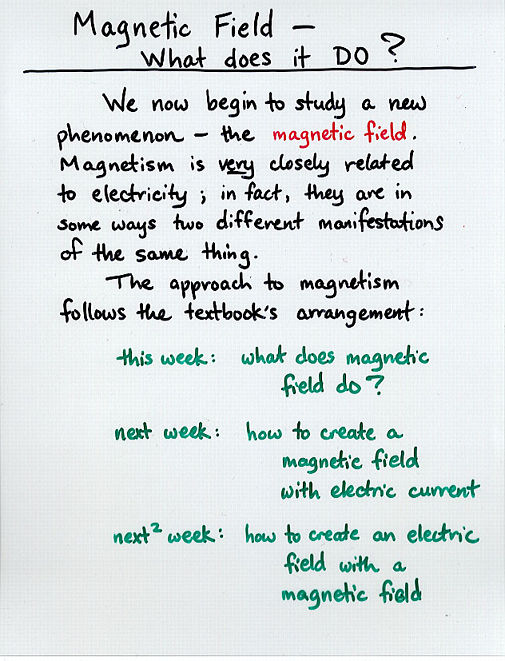 Magnetic Field —
What does it DO?
We now begin to study a new
phenomenon – the magnetic field.
Magnetism is very closely related
to electricity; in fact, they are in
some ways two different manifestations
of the same thing.
The approach to magnetism
follows the textbook's arrangement:
this week: what does magnetic
field do?
next week: how to create a
magnetic field
with electric current
next² week: how to create an electric
field with a
magnetic field